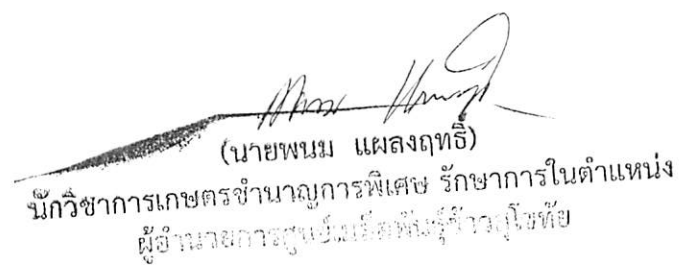 (นายพนม แผลงฤทธิ์)
นักวิชาการเกษตรชำนาญการพิเศษ รักษาการในตำแหน่ง
ผู้อำนวยการศูนย์เมล็ดพันธุ์ข้าวสุโขทัย